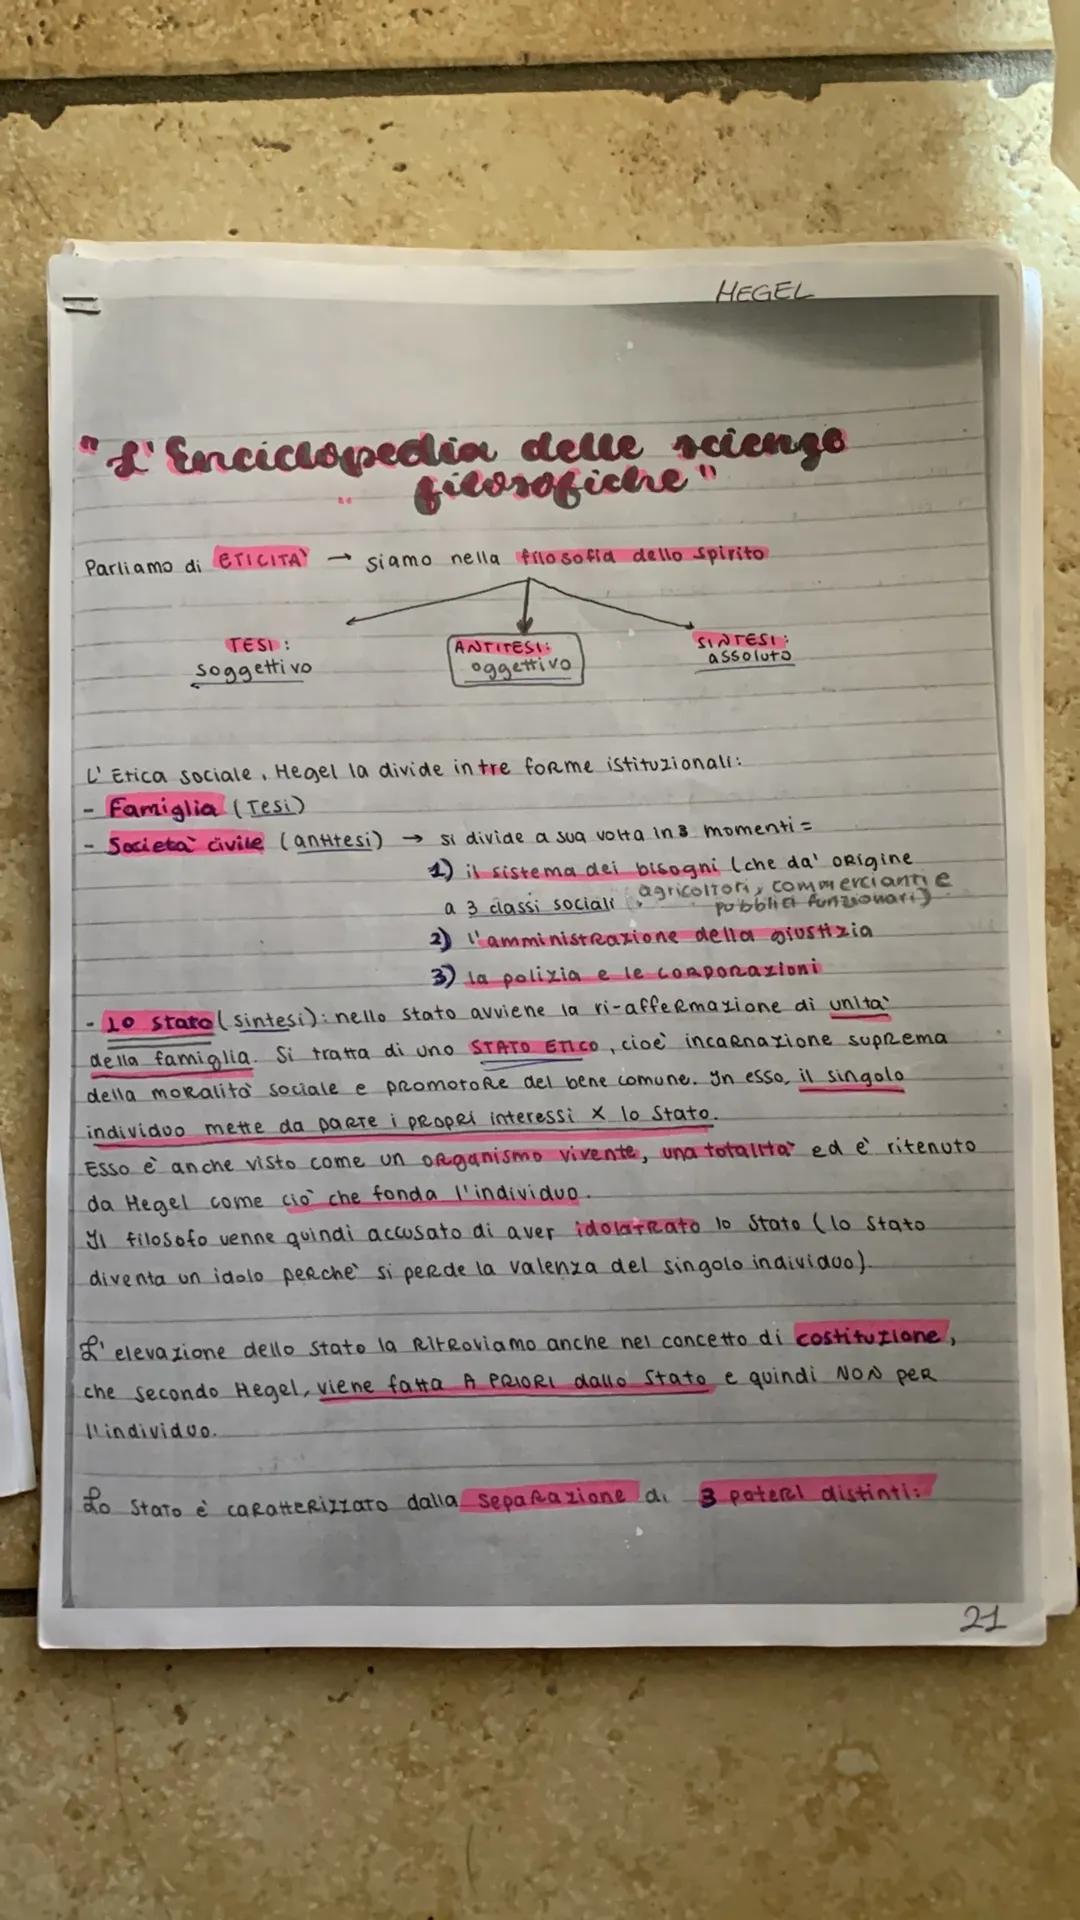 HEGEL
"L'Enciclopedia delle scienze
filosofiche"
Parliamo di ETICITA' → siamo nella filosofia dello spirito
TESI: ANTITESI: SINTESI:
soggettivo oggettivo assoluto
L'Etica sociale, Hegel la divide in tre forme istituzionali:
- Famiglia (Tesi)
- Societa' civile (antitesi) → si divide a sua volta in 3 momenti =
1) il sistema dei bisogni (che da' origine
a 3 classi sociali: agricoltori, commercianti e
pubblici funzionari)
2) l'amministrazione della giustizia
3) la polizia e le corporazioni
- lo stato (sintesi): nello stato avviene la ri-affermazione di unita'
della famiglia. Si tratta di uno STATO ETICO, cioe' incarnazione suprema
della moralita' sociale e promotore del bene comune. In esso, il singolo
individuo mette da parte i propri interessi x lo Stato.
Esso e' anche visto come un organismo vivente, una totalita' ed e' ritenuto
da Hegel come cio' che fonda l'individuo.
Il filosofo venne quindi accusato di aver idolatrato lo Stato (lo Stato
diventa un idolo perche' si perde la valenza del singolo individuo).
L'elevazione dello Stato la ritroviamo anche nel concetto di costituzione,
che secondo Hegel, viene fatta A PRIORI dallo Stato e quindi NON per
l'individuo.
Lo Stato e' caratterizzato dalla separazione di 3 poteri distinti:
21